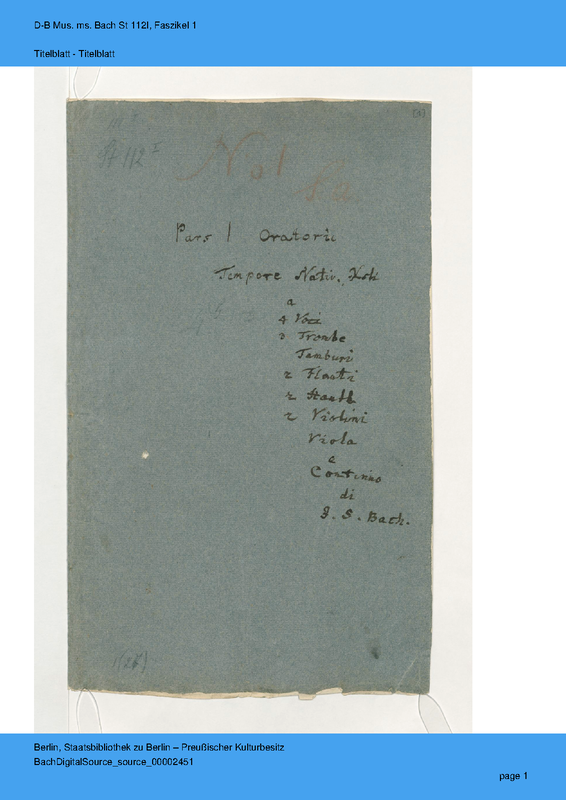 D-B Mus. ms. Bach St 112I, Faszikel 1
Titelblatt - Titelblatt
St 112 I
Nal
Pars I Oratorii
Tempore Nativ. Xsti
a
4 Voci
3 Trombe
Tamburi
2 Flauti
2 Hautb
2 Violini
Viola
e
Continuo
di
J. S. Bach.
Berlin, Staatsbibliothek zu Berlin – Preußischer Kulturbesitz
BachDigitalSource_source_00002451
page 1